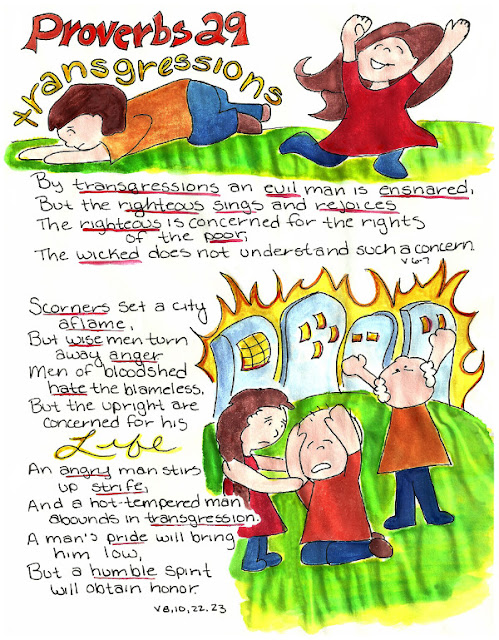 Proverbs 29
transgressions
By transgressions an evil man is ensnared,
But the righteous sings and rejoices
The righteous is concerned for the rights
of the poor,
The wicked does not understand such a concern.
v 6-7
Scorners set a city
aflame,
But wise men turn
away anger
Men of bloodshed
hate the blameless,
But the upright are
concerned for his
Life
An angry man stirs
up strife,
And a hot-tempered man
abounds in transgression.
A man's pride will bring
him low,
But a humble spirit
will obtain honor.
v 8, 10, 22, 23